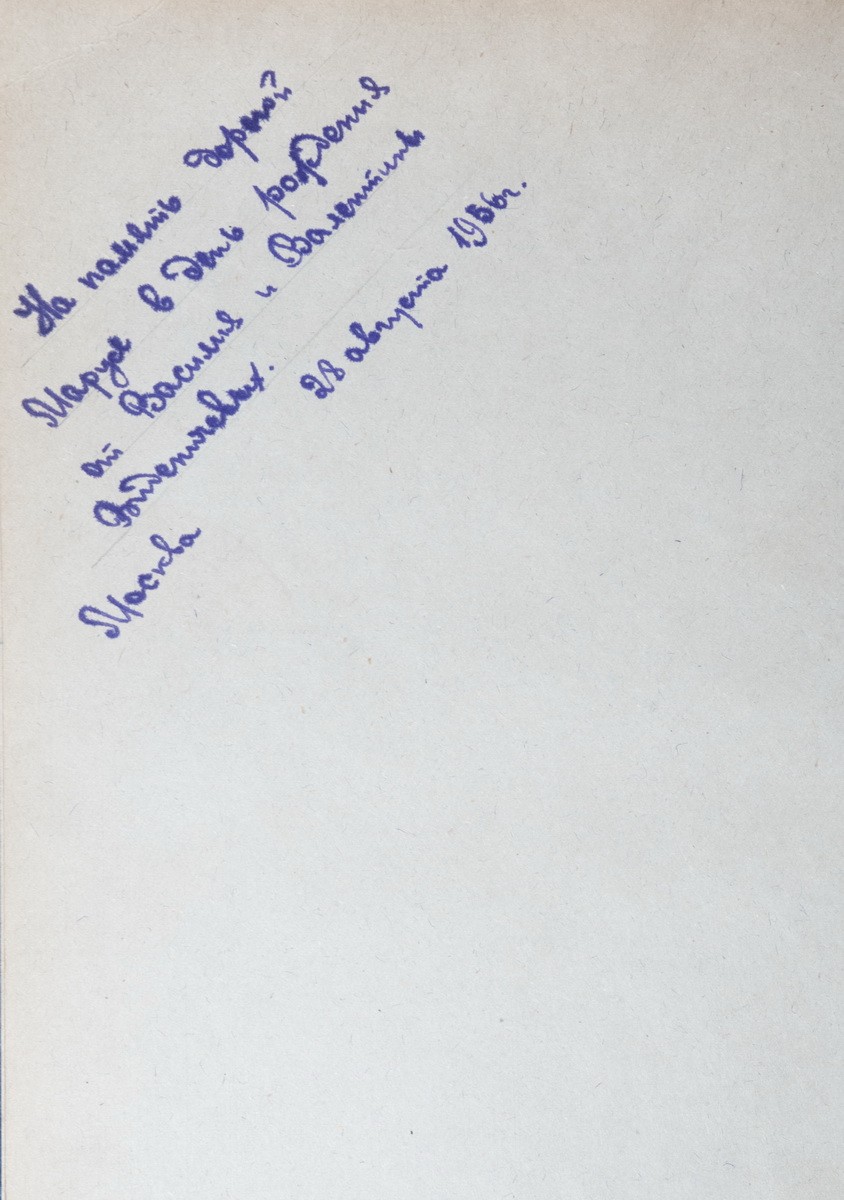 На память дорогой
Марусе в день рождения
от Василия и Валентины
Виденичевых.
28 августа 1956г.
Москва